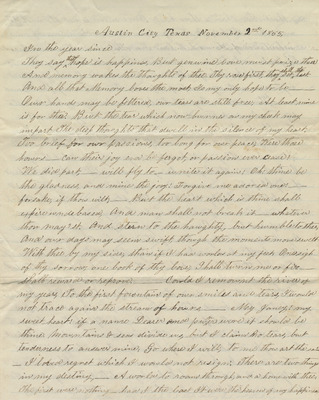 Austin City Texas November 2nd 1855
For the year since
They say that Hope is happiness But genuine love must prize the past
And memory wakes the thoughts of that they rose first they set the last
And all that Memory loves the most
hands may be fettered our tears are still free
it is for thee. But the tear which now burns
impart The deep thoughts that dwell in the silence of my heart
Too brief for our passion, too long for our peace Were those
hours can their joy or be forgot or passions ever cease
We did part will fly to unite it again Oh thine be
the gladness and mine the forgive me adored one
forsake if thou wilt But the heart which is thine shall
expire undebased And man shall not break it whatever
thou may'st And stern to the haughty, but humble to thee
And our days may seem swift though the moments move swift
With thee by my side, than if I had worlds at my feet One sigh
of thy sorrow one look of thy love Shall turn me or fix
shall reward or reprove Could I remount the river of
my years To the first fountain of our smiles and tears I would
not trace again the stream of hours My Sister my
sweet Sister if a name Dearer and purer were it should be
thine Mountains & seas divide us but I claim No tears but
tenderness to answer mine Go where I will, to me thou art the same
A loved regret which I would not resign There are two things
in my destiny A world to roam through, and a home with thee
The first were nothing had I the last It were the haven of my happiness